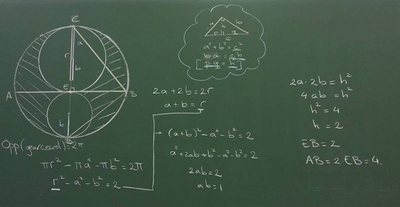 C
a
r
b
A
E
B
b
Opp(gearceerd)=2π
πr² - πa² - πb² = 2π
r² - a² - b² = 2
2a+2b = 2r
a+b = r
(a+b)² - a² - b² = 2
a² + 2ab + b² - a² - b² = 2
2ab = 2
ab = 1
a h b
p q
c
a² + b² = c²
2a · 2b = h²
4ab = h²
h² = 4
h = 2
EB = 2
AB = 2·EB = 4.